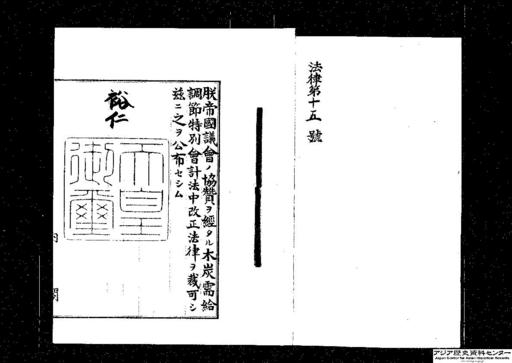 法律第十五號
朕帝國議會ノ協贊ヲ經タル木炭需給
調節特別會計法中改正法律ヲ裁可シ
玆ニ之ヲ公布セシム
裕仁
天皇
御璽
内
閣
アジア歴史資料センター
Japan Center for Asian Historical Records